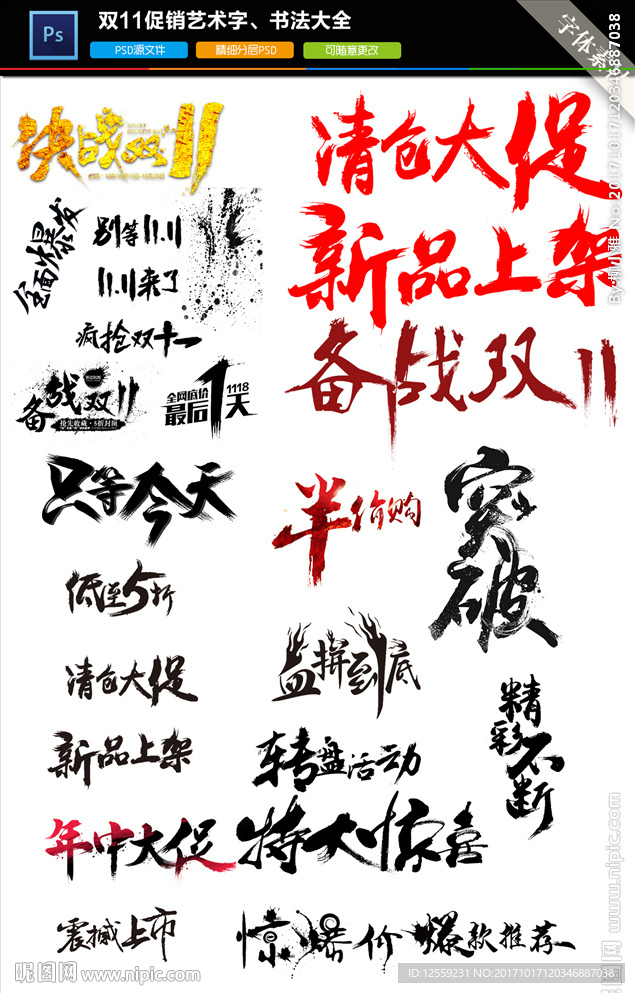 Ps
双11促销艺术字、书法大全
PSD源文件
精细分层PSD
可随意更改
字体素
决战双11
清仓大促
全面爆发
别等11.11
11.11来了
新品上架
疯抢双十一
备战双11
抢先收藏·5折封顶
全网底价
最后1天
1118
备战双11
只等今天
半价购
突破
低至5折
血拼到底
清仓大促
精彩不断
新品上架
转盘活动
年中大促
特大惊喜
震撼上市
惊爆价
爆款推荐
昵图网 www.nipic.com
ID:12559231 NO:20171017120346887038
www.nipic.com
No.20171017120346887038